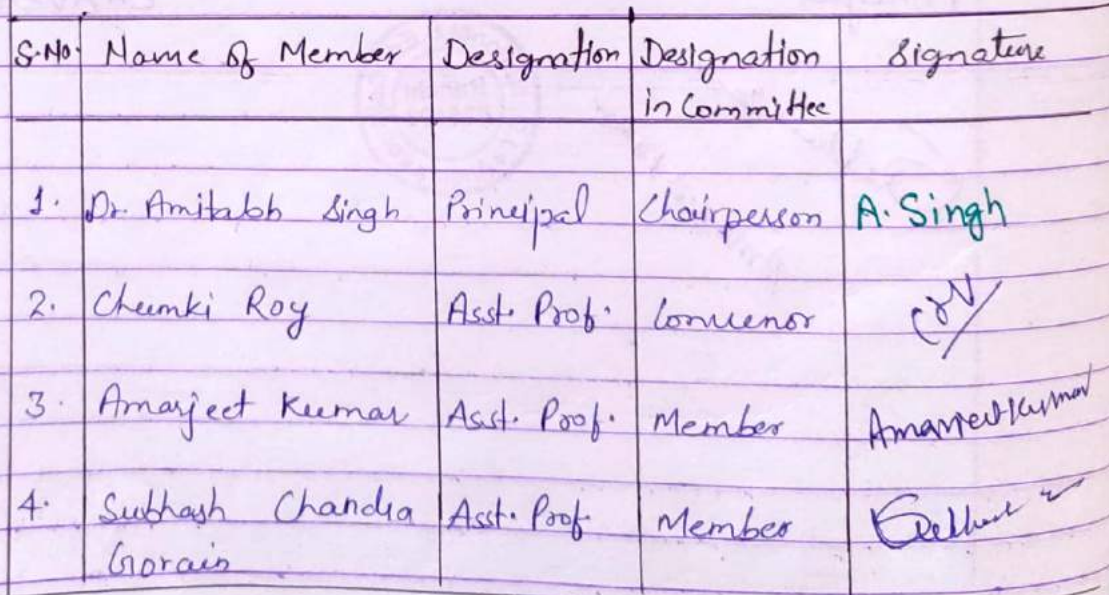 S.No. Name of Member Designation Designation Signature
in Committee
1. Dr. Amitabh Singh Principal Chairperson A. Singh
2. Chumki Roy Asst. Prof. Convenor
3. Amarjeet Kumar Asst. Prof. Member Amarjeet Kumar
4. Subhash Chandra Asst. Prof. Member
Gorain